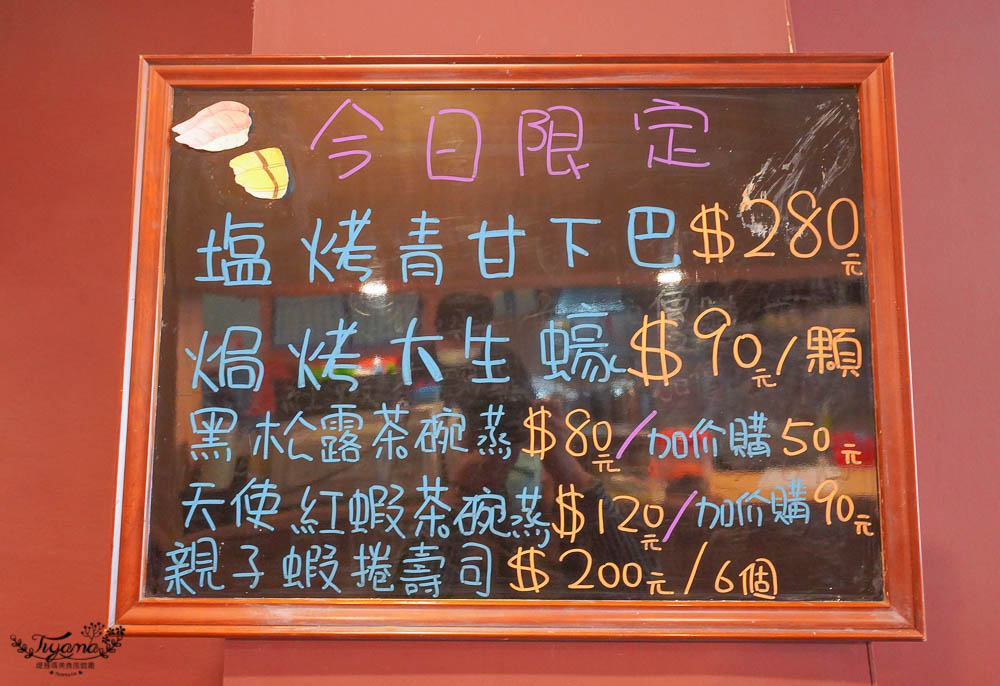 今日限定
塩烤青甘下巴 $280元
焗烤大生蠔 $90元/顆
黑松露茶碗蒸 $80元/加价購50元
天使紅蝦茶碗蒸 $120元/加价購90元
親子蝦捲壽司 $200元/6個
Tiyama